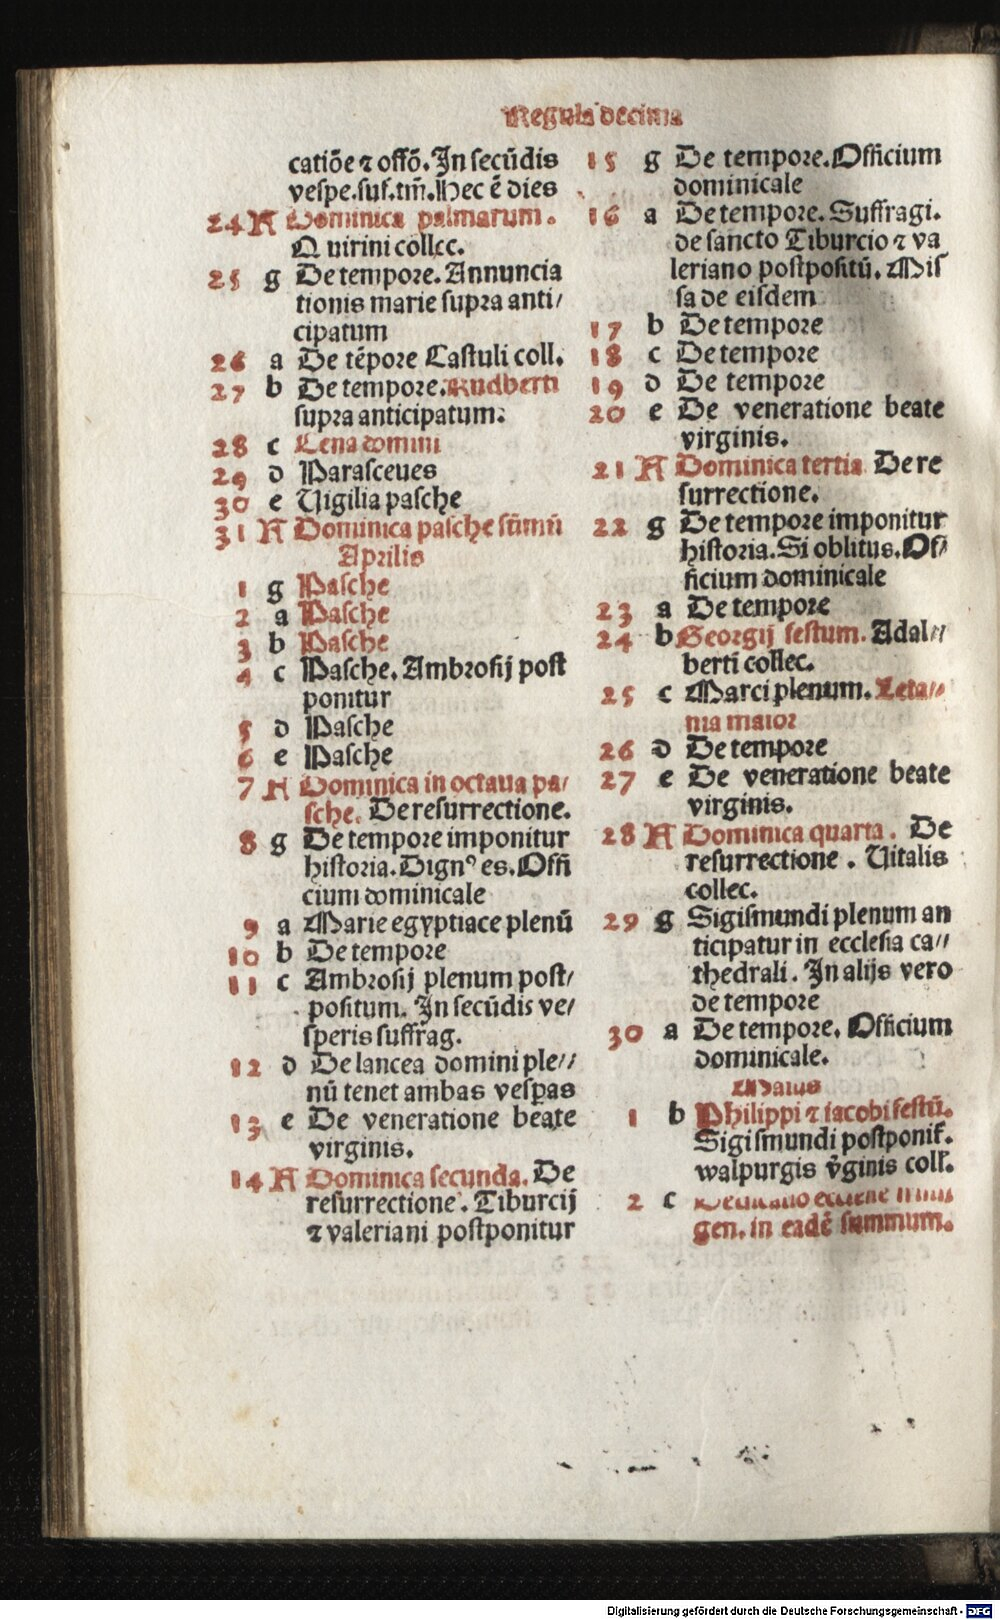 Regula decima
catiōe ⁊ offō. In secūdis
vespe. suf. tm̄. Hec ē dies
24 A Dominica palmarum.
Quirini collec.
25 g De tempore. Annuncia
tionis marie supra anti/
cipatum
26 a De tēpore Castuli coll.
27 b De tempore. Rudberti
supra anticipatum.
28 c Cena domini
29 d Parasceues
30 e Vigilia pasche
31 A Dominica pasche sūmū
Aprilis
1 g Pasche
2 a Pasche
3 b Pasche
4 c Pasche. Ambrosij post
ponitur
5 d Pasche
6 e Pasche
7 A Dominica in octaua pa/
sche. De resurrectione.
8 g De tempore imponitur
historia. Dignꝰ es. Offi
cium dominicale
9 a Marie egyptiace plenū
10 b De tempore
11 c Ambrosij plenum post/
positum. In secūdis ve/
speris suffrag.
12 d De lancea domini ple//
nū tenet ambas vesꝑas
13 e De veneratione beate
virginis.
14 A Dominica secunda. De
resurrectione. Tiburcij
⁊ valeriani postponitur
15 g De tempore. Officium
dominicale
16 a De tempore. Suffragi.
de sancto Tiburcio ⁊ va
leriano postpositū. Mis
sa de eisdem
17 b De tempore
18 c De tempore
19 d De tempore
20 e De veneratione beate
virginis.
21 A Dominica tertia De re
surrectione.
22 g De tempore imponitur
historia. Si oblitus. Of/
ficium dominicale
23 a De tempore
24 b Georgij festum. Adal//
berti collec.
25 c Marci plenum. Leta//
nia maior
26 d De tempore
27 e De veneratione beate
virginis.
28 A Dominica quarta. De
resurrectione. Vitalis
collec.
29 g Sigismundi plenum an
ticipatur in ecclesia ca//
thedrali. In alijs vero
de tempore
30 a De tempore. Officium
dominicale.
Maius
1 b Philippi ⁊ iacobi festū.
Sigismundi postponit̄.
walpurgis v̄ginis coll̄.
2 c
gen. in eadē summum.
Digitalisierung gefördert durch die Deutsche Forschungsgemeinschaft - DFG